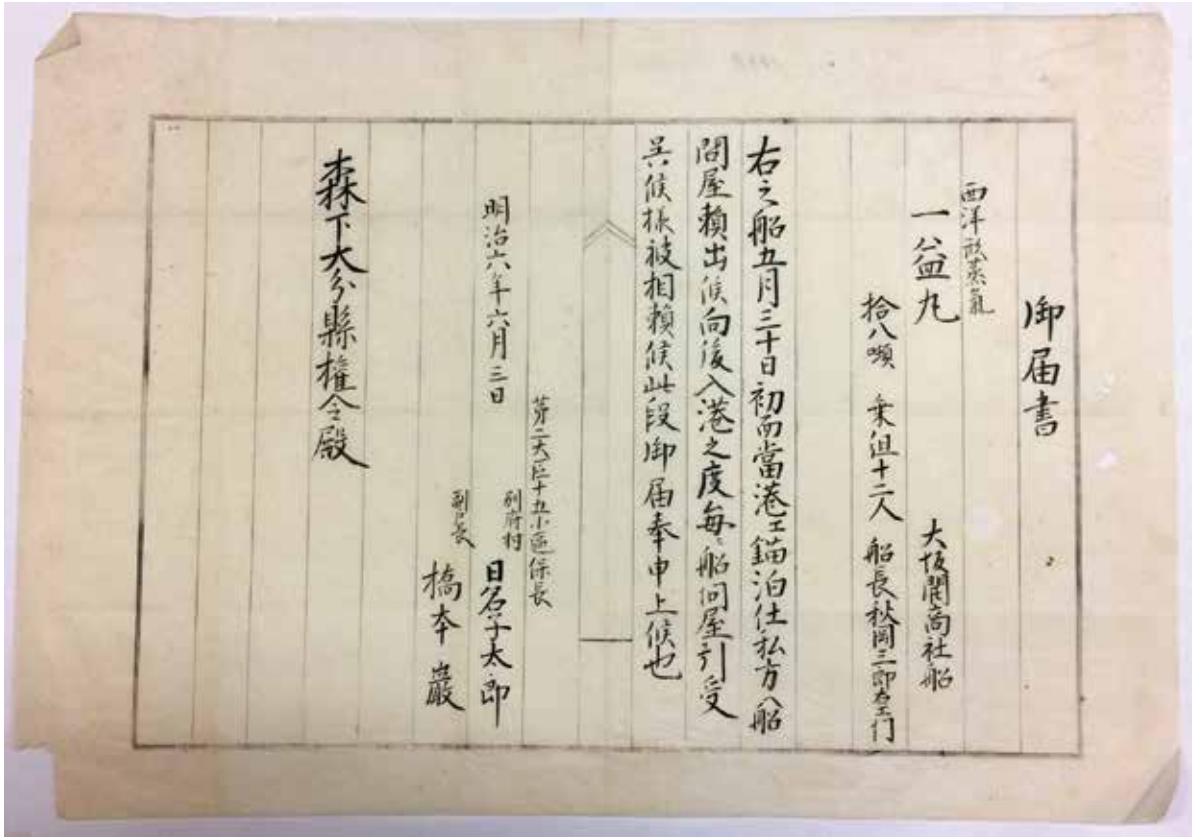 御届書
西洋形蒸氣
一 益丸 大坂開商社船
拾八噸 乗組十二人 船長秋岡三郎左エ門
右之船五月三十日初而當港エ錨泊仕私方へ船
問屋頼出候向後入港之度毎ニ船問屋引受
呉候様被相頼候此段御届奉申上候也
第二大区十五小區保長
明治六年六月三日 別府村 日名子太郎
副長 橋本巖
森下大分縣權令殿